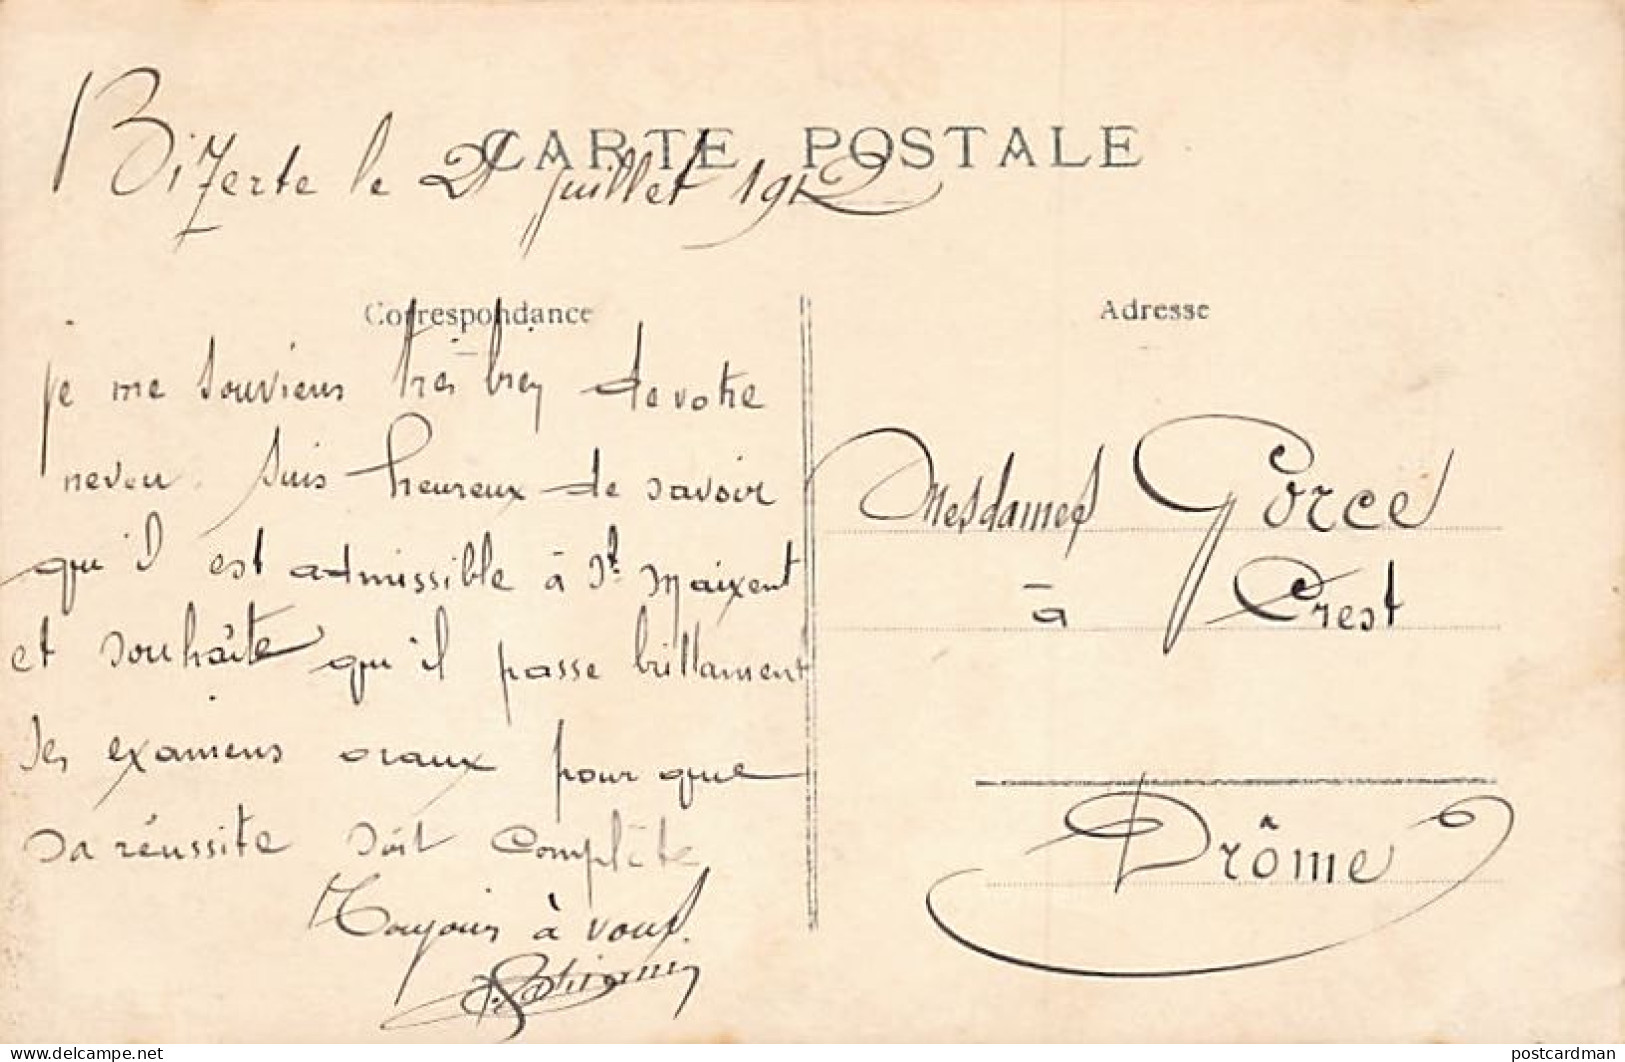 CARTE POSTALE
Bizerte le 21 Juillet 1912
Correspondance
Adresse
je me souviens très bien de votre
neveu. Suis heureux de savoir
qu'il est admissible à St. Maixent
et souhaite qu'il passe brillament
ses examens oraux pour que
sa réussite soit complète
Toujours à vous.
Mesdames Gorce
à Crest
Drôme
delcampe.net
postcardman